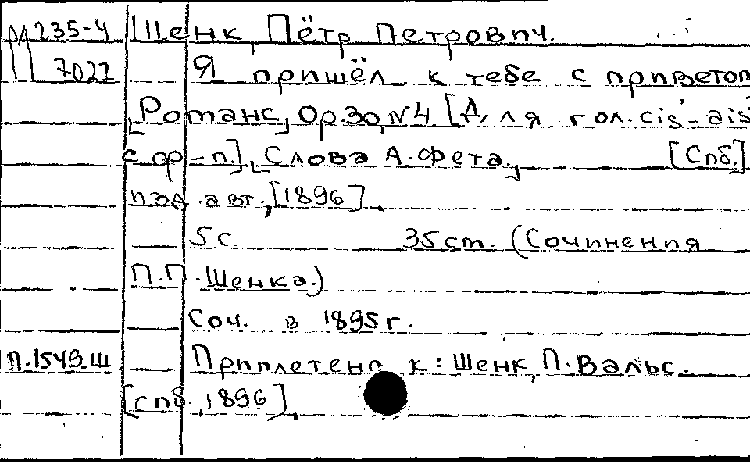 М 235-4 Шенк, Пётр Петрович.
7022 Я пришёл к тебе с приветом
[Романс], Ор.30, №4 [Для гол. cis'-ais
с ф-п.], [Слова А. Фета.] [Спб.]
изд. авт., [1896].
5с 35 cm. (Сочинения
П.П. Шенка.)
Соч. в 1895 г.
П.1549.Ш Приплетено к: Шенк, П. Вальс.
[спб., 1896].